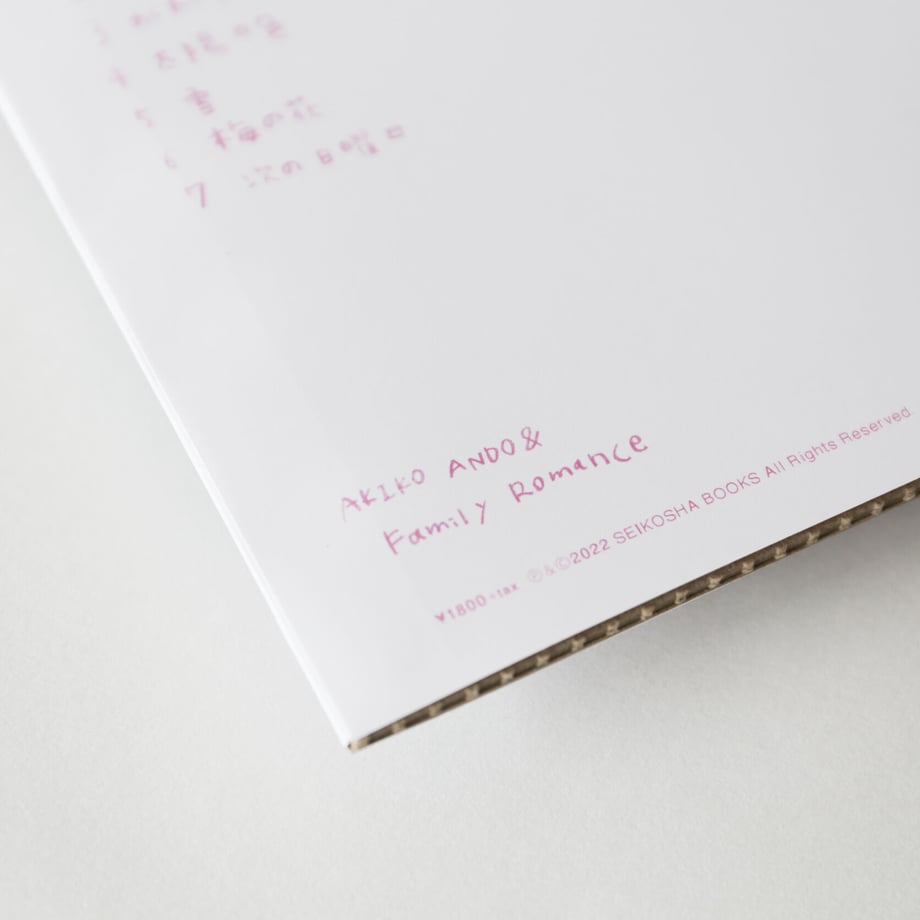 5 雪
6 梅の花
7 次の日曜日
AKIKO ANDO &
Family Romance
¥1800+tax ℗&©2022 SEIKOSHA BOOKS All Rights Reserved.